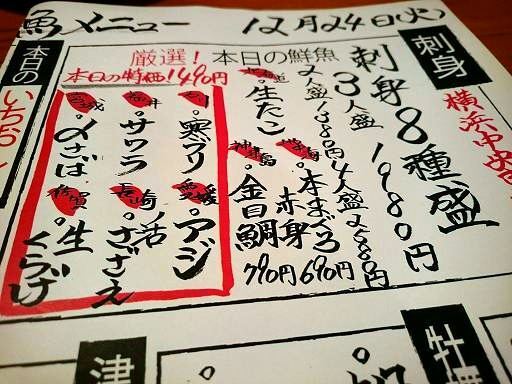 魚メニュー 12月24日(火)
刺身
横浜中央
厳選!本日の鮮魚
本日の特価1490円
刺身8種盛 1980円
3人盛
4人盛 2580円
2人盛 1380円
本まぐろ赤身 690円
生たこ
神津島 金目鯛 790円
寒ブリ
愛媛 アジ
福井 サワラ
長崎 活さざえ
宮城 〆さば
佐賀 生くらげ
本日のいちおし
津
牡